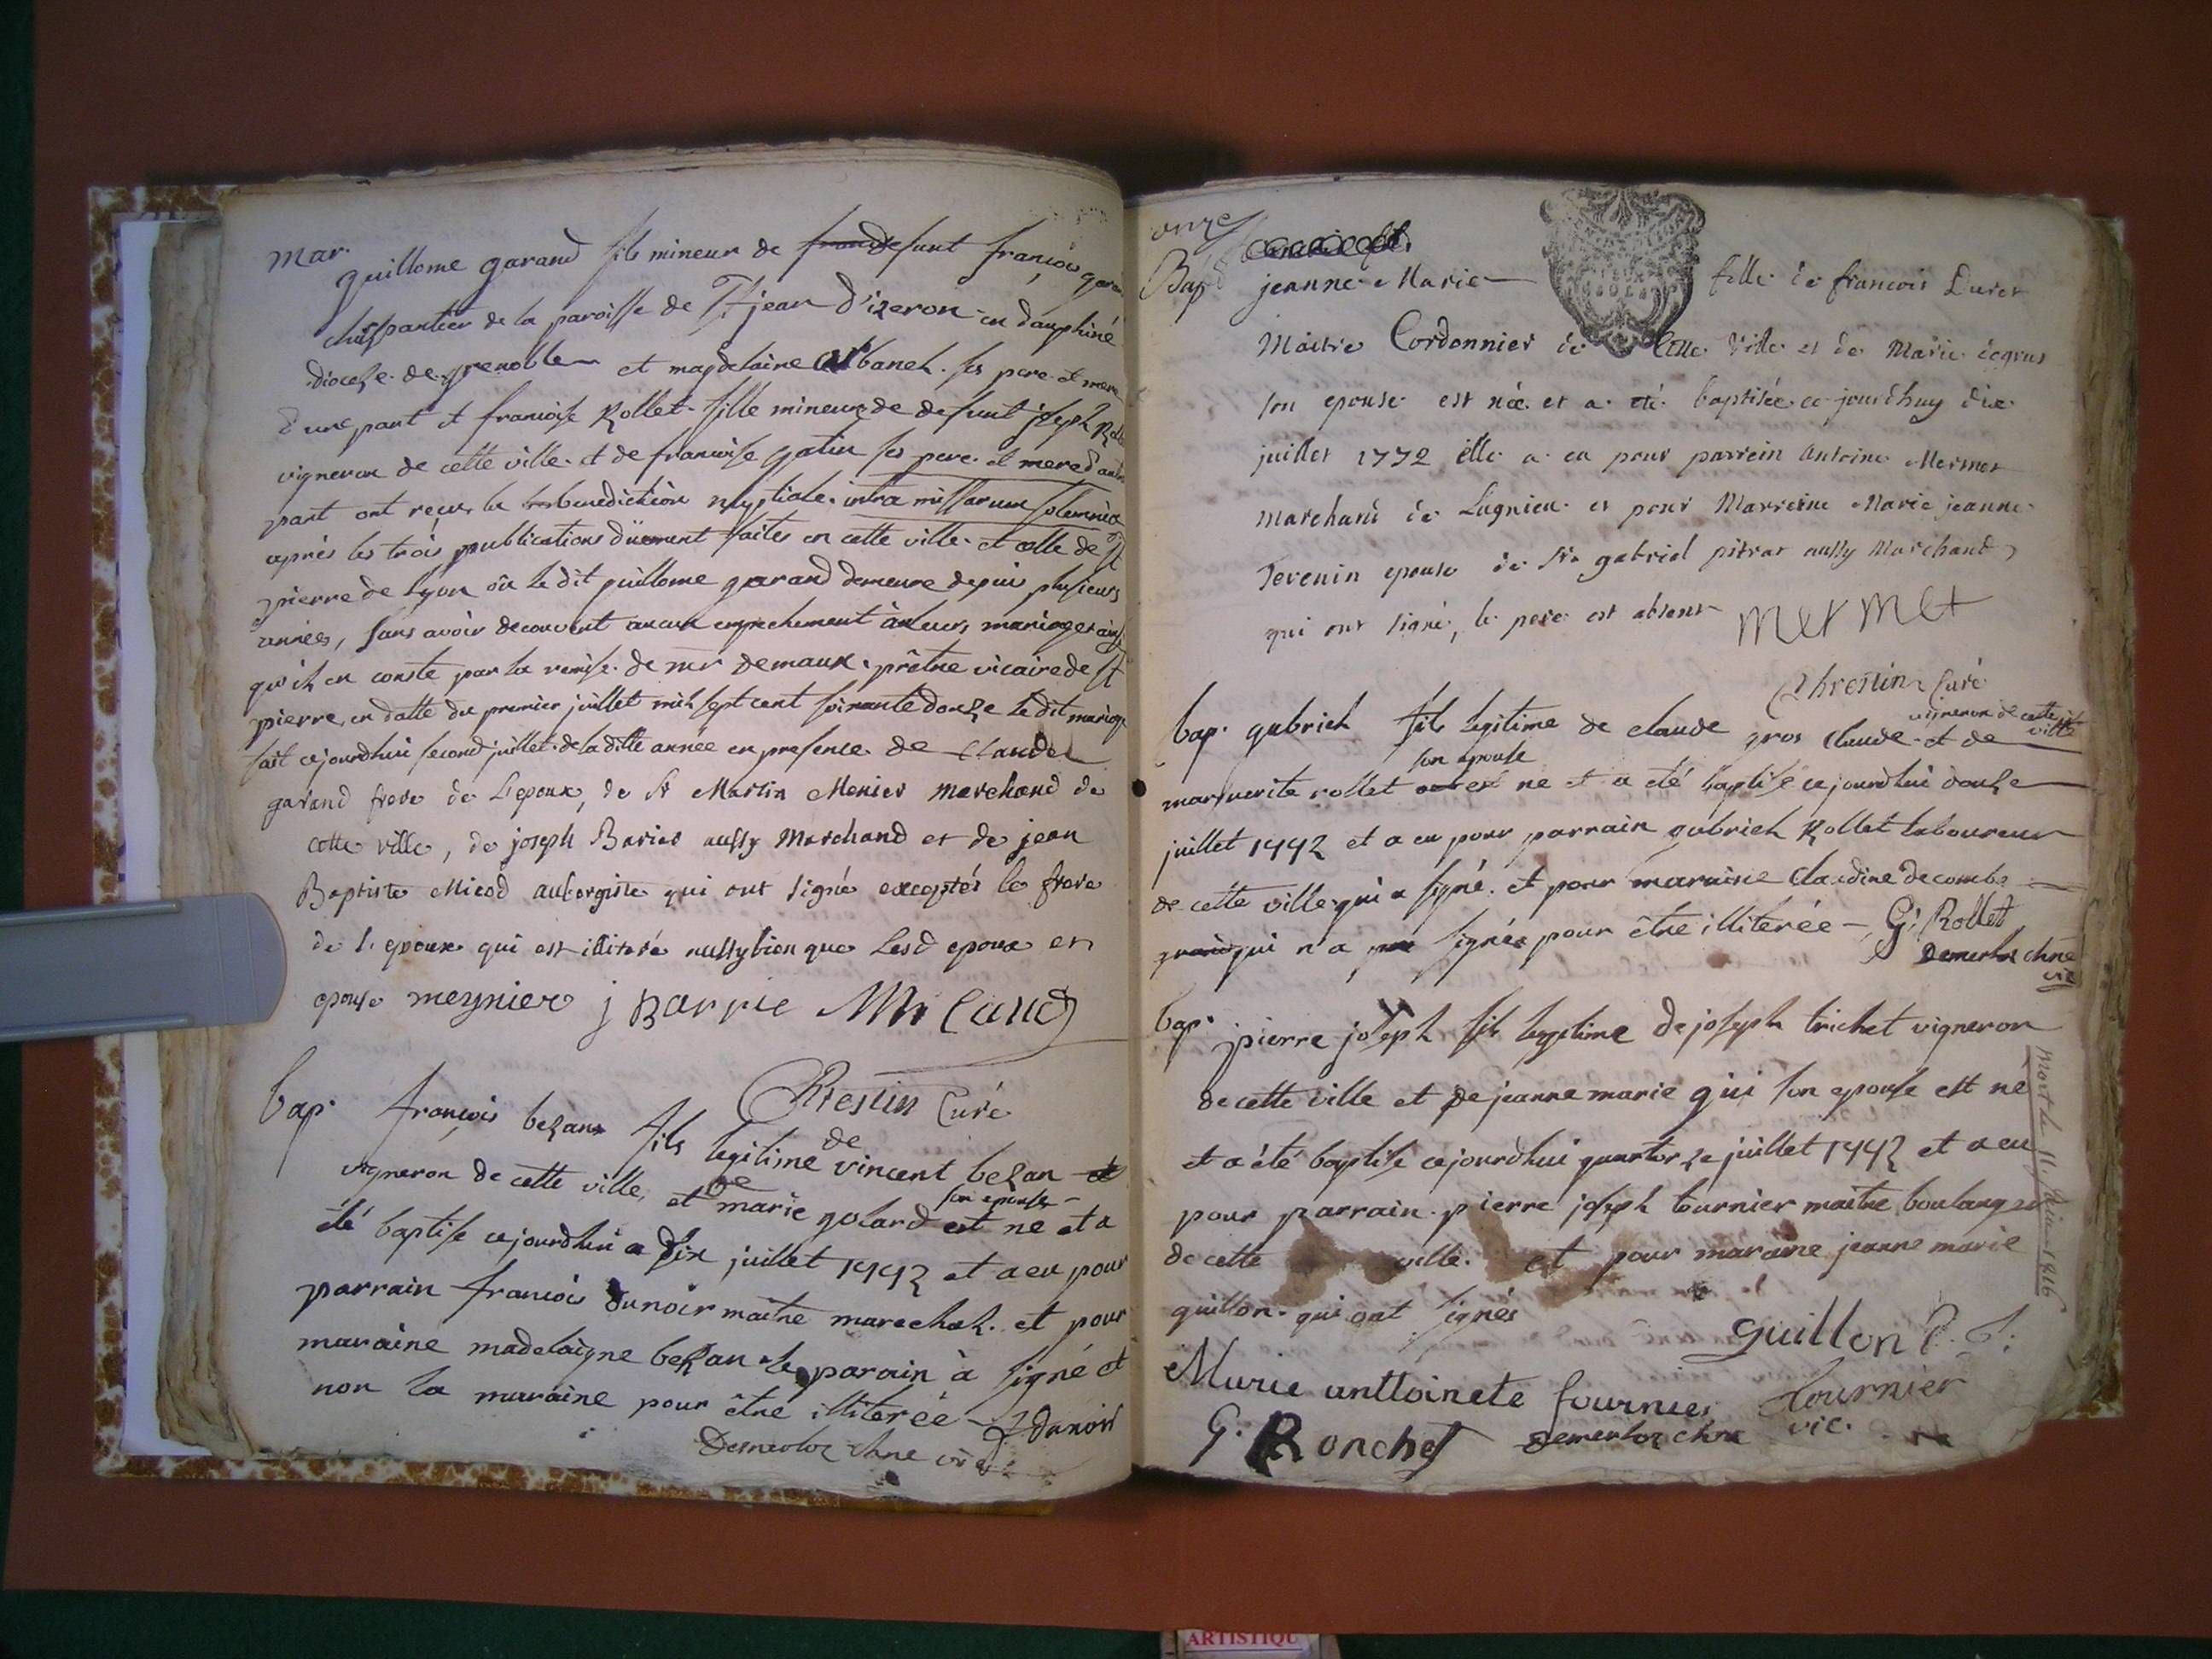 mar.
guillome garand fils mineur de defunt françois
charpantier de la paroisse de St jean d'izeron en dauphiné
diocese de grenoble et magdelaine albanel ses pere et mere
d'une part et francoise Rollet fille mineure de defunt joseph
vigneron de cette ville et de francoise gatin ses pere et mere d'autre
part ont reçu la benediction nuptiale intra missarum solemnia
après les trois publications düement faites en cette ville et celle de St
pierre de lyon où le dit guillome garand demeure depuis plusieurs
années, sans avoir decouvert aucun empechement à leurs mariages ainsy
qu'il en conste par la remise de mr demaux prêtre vicaire de St
pierre en datte du premier juillet mil sept cent soixante douze le dit mariage
fait cejourdhui second juillet de la ditte année en presence de Claude
garand frere de L'epoux, de Sr Martin Menier marchand de
cette ville, de joseph Barier aussy Marchand et de jean
Baptiste Micod aubergiste qui ont signé exceptés le frere
de l'epoux qui est illiteré aussybien que Lesd epoux et
epouse meynier j Barrie Mn Caud
Chrestin Curé
bap. françois bezan fils legitime de vincent bezan et
vigneron de cette ville, et de marie golard son epouse est ne et a
été baptise cejourdhui a dix juillet 1772 et a eu pour
parrain francois dunoir maitre marechal et pour
maraine madelaigne bezan le parain à signé et
non la maraine pour être illiterée f dunoir
Demerloz chne vic
onze
Bap jeanne Marie fille de francois Duret
Maitre Cordonnier de Cette Ville et de Marie degrus
son epouse est née et a eté baptisée ce jourdhuy dix
juillet 1772 elle a eu pour parrein antoine Mermet
marchand de Lagnieu et pour Marreine Marie jeanne
Tevenin epouse de Sr gabriel pitrat aussy Marchand
qui ont signé, le pere est absent Mermet
Chrestin Curé
bap. gabriel fils legitime de claude gros claude vigneron de cette ville et de
marguerite rollet son epouse est ne et a été baptise cejourdhui douze
juillet 1772 et a eu pour parrain gabriel Rollet laboureur
de cette ville qui a signé et pour maraine claudine decombe
qui n'a signée pour être illiterée G. Rollet
Demerloz chne
vic
bap. pierre joseph fils legitime de joseph trichet vigneron
de cette ville et de jeanne marie gui son epouse est ne
et a été baptise cejourdhui quatorze juillet 1772 et a eu
pour parrain pierre joseph tournier maitre boulanger
de cette ville et pour maraine jeanne marie
guillon qui ont signés
guillon P. J.
Marie anttoinete fournier tournier
G. Ronchet Demerloz chne vic.
mort le 11
ARTISTIQU